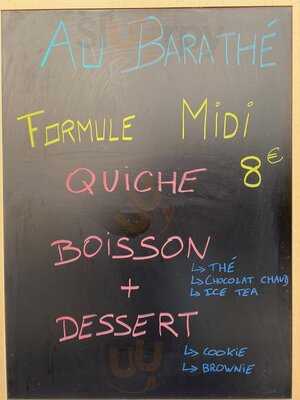 AU BARATHÉ
FORMULE MIDI
8€
QUICHE
BOISSON
↳ THÉ
↳ CHOCOLAT CHAUD
↳ ICE TEA
+
DESSERT
↳ COOKIE
↳ BROWNIE